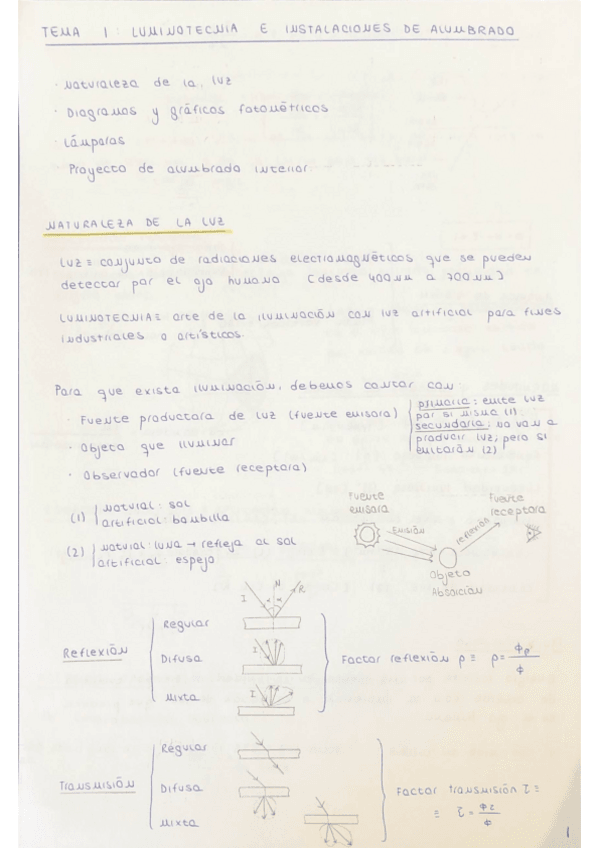 TEMA 1: LUMINOTECNIA E INSTALACIONES DE ALUMBRADO
· Naturaleza de la luz
· Diagramas y gráficos fotométricos
· Lámparas
Proyecto de alumbrado interior
NATURALEZA DE LA LUZ
LUZ ≡ conjunto de radiaciones electromagnéticas que se pueden
detectar por el ojo humano (desde 400nm a 700nm)
LUMINOTECNIA ≡ arte de la iluminación con luz artificial para fines
industriales o artísticos.
Para que exista iluminación, debemos contar con:
· Fuente productora de luz (fuente emisora)
primaria: emite luz
por si misma (1).
secundaria: no van a
producir luz, pero si
emitarán (2)
· Objeto que iluminar
· Observador (fuente receptora)
(1) natural: sol
artificial: bombilla
(2) natural: luna → refleja al sol
artificial: espejo
Fuente
emisora
Emisión
reflexión
Fuente
receptora
Objeto
Absorción
Reflexión
Regular
Difusa
Mixta
I
N
R
α α
I
I
Factor reflexión ρ ≡ ρ = ϕρ/ϕ
Transmisión
Regular
Difusa
Mixta
Factor transmisión τ ≡
≡ τ = ϕτ/ϕ
1